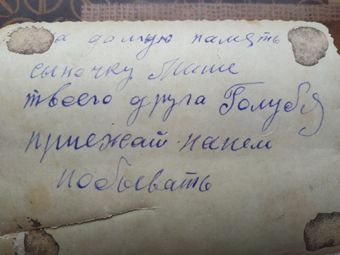 а долгую память
сыночку Мише
твоего друга Голубя
приежай нанем
побывать